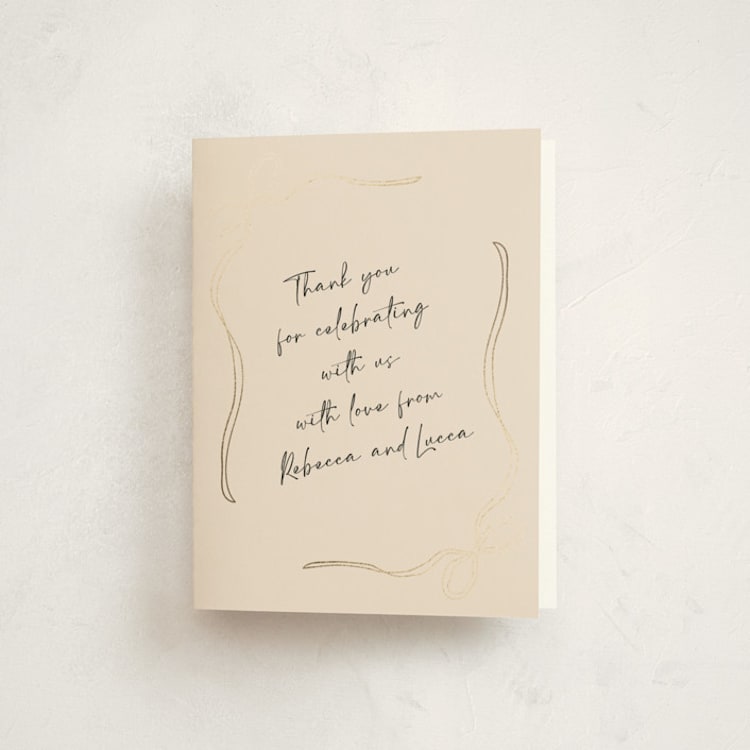 Thank you
for celebrating
with us
with love from
Rebecca and Lucca